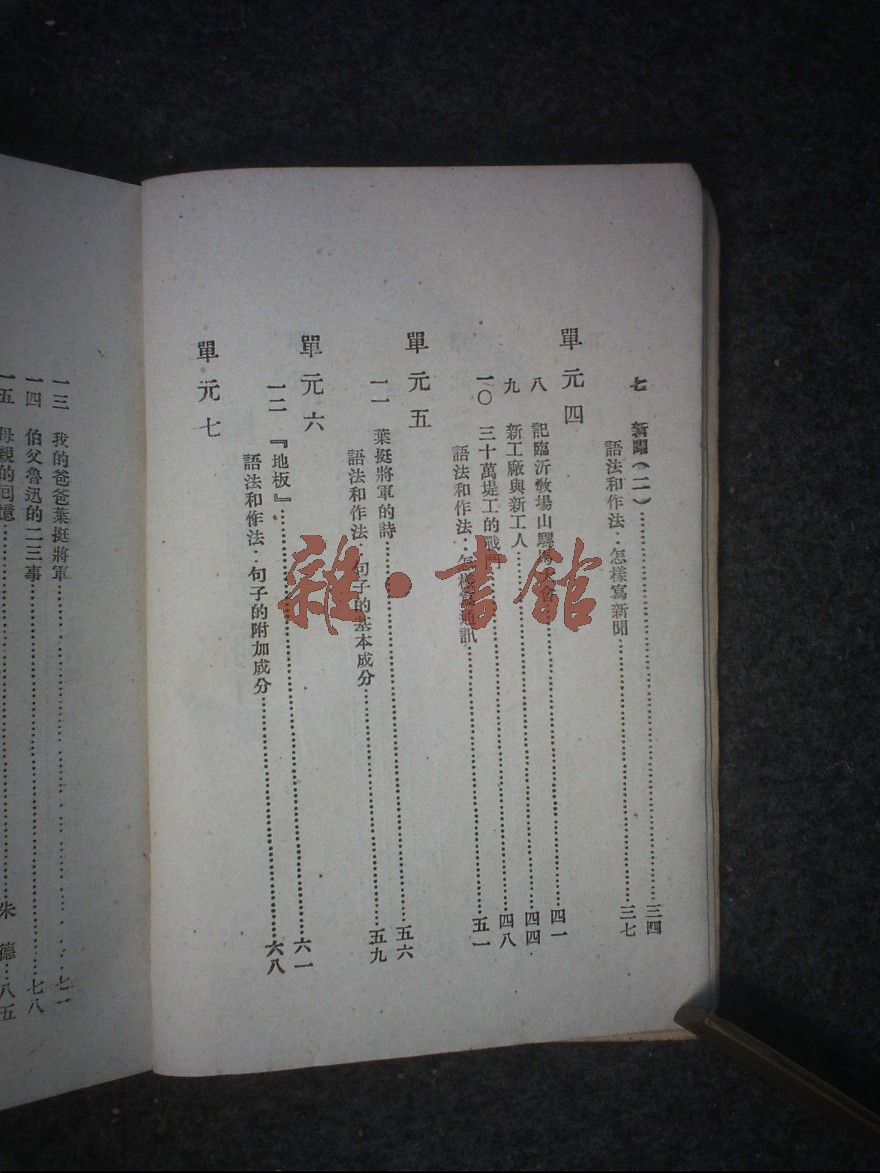 七 新聞(二)……三四
語法和作法：怎樣寫新聞……三七
單元四
八 記臨沂敎場山驛……四一
九 新工廠與新工人……四四
一〇 三十萬堤工的戰鬥……四八
語法和作法：怎樣寫通訊……五一
單元五
一一 葉挺將軍的詩……五六
語法和作法：句子的基本成分……五九
單元六
一二 『地板』……六一
語法和作法：句子的附加成分……六八
單元七
一三 我的爸爸葉挺將軍……七一
一四 伯父魯迅的二三事……七八
一五 母親的回憶……朱 德……八五
雜·書館